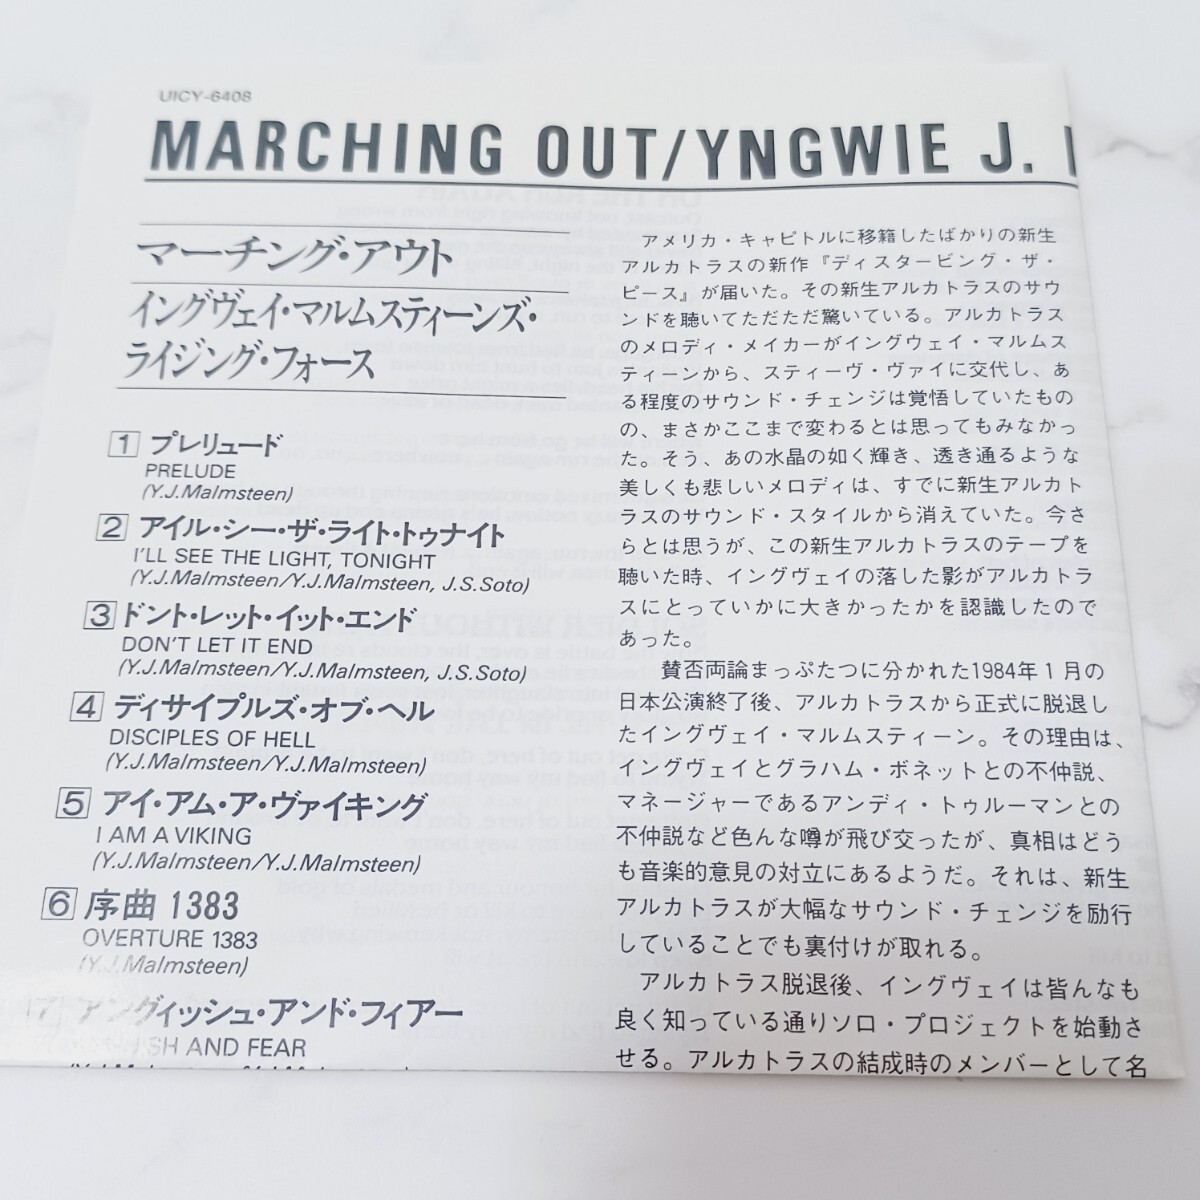 UICY-6408
MARCHING OUT/YNGWIE J.
マーチング・アウト
イングヴェイ・マルムスティーンズ・
ライジング・フォース
1 プレリュード
PRELUDE
(Y.J.Malmsteen)
2 アイル・シー・ザ・ライト・トゥナイト
I'LL SEE THE LIGHT, TONIGHT
(Y.J.Malmsteen/Y.J.Malmsteen, J.S.Soto)
3 ドント・レット・イット・エンド
DON'T LET IT END
(Y.J.Malmsteen/Y.J.Malmsteen, J.S.Soto)
4 ディサイプルズ・オブ・ヘル
DISCIPLES OF HELL
(Y.J.Malmsteen/Y.J.Malmsteen)
5 アイ・アム・ア・ヴァイキング
I AM A VIKING
(Y.J.Malmsteen/Y.J.Malmsteen)
6 序曲 1383
OVERTURE 1383
(Y.J.Malmsteen)
7 アングィッシュ・アンド・フィアー
AND FEAR
アメリカ・キャピトルに移籍したばかりの新生
アルカトラスの新作『ディスタービング・ザ・
ピース』が届いた。その新生アルカトラスのサウ
ンドを聴いてただただ驚いている。アルカトラス
のメロディ・メイカーがイングウェイ・マルムス
ティーンから、スティーヴ・ヴァイに交代し、あ
る程度のサウンド・チェンジは覚悟していたもの
の、まさかここまで変わるとは思ってもみなかっ
た。そう、あの水晶の如く輝き、透き通るような
美しくも悲しいメロディは、すでに新生アルカト
ラスのサウンド・スタイルから消えていた。今さ
らとは思うが、この新生アルカトラスのテープを
聴いた時、イングヴェイの落した影がアルカトラ
スにとっていかに大きかったかを認識したので
あった。
賛否両論まっぷたつに分かれた1984年1月の
日本公演終了後、アルカトラスから正式に脱退し
たイングヴェイ・マルムスティーン。その理由は、
イングヴェイとグラハム・ボネットとの不仲説、
マネージャーであるアンディ・トゥルーマンとの
不仲説など色んな噂が飛び交ったが、真相はどう
も音楽的意見の対立にあるようだ。それは、新生
アルカトラスが大幅なサウンド・チェンジを励行
していることでも裏付けが取れる。
アルカトラス脱退後、イングヴェイは皆んなも
良く知っている通りソロ・プロジェクトを始動さ
せる。アルカトラスの結成時のメンバーとして名